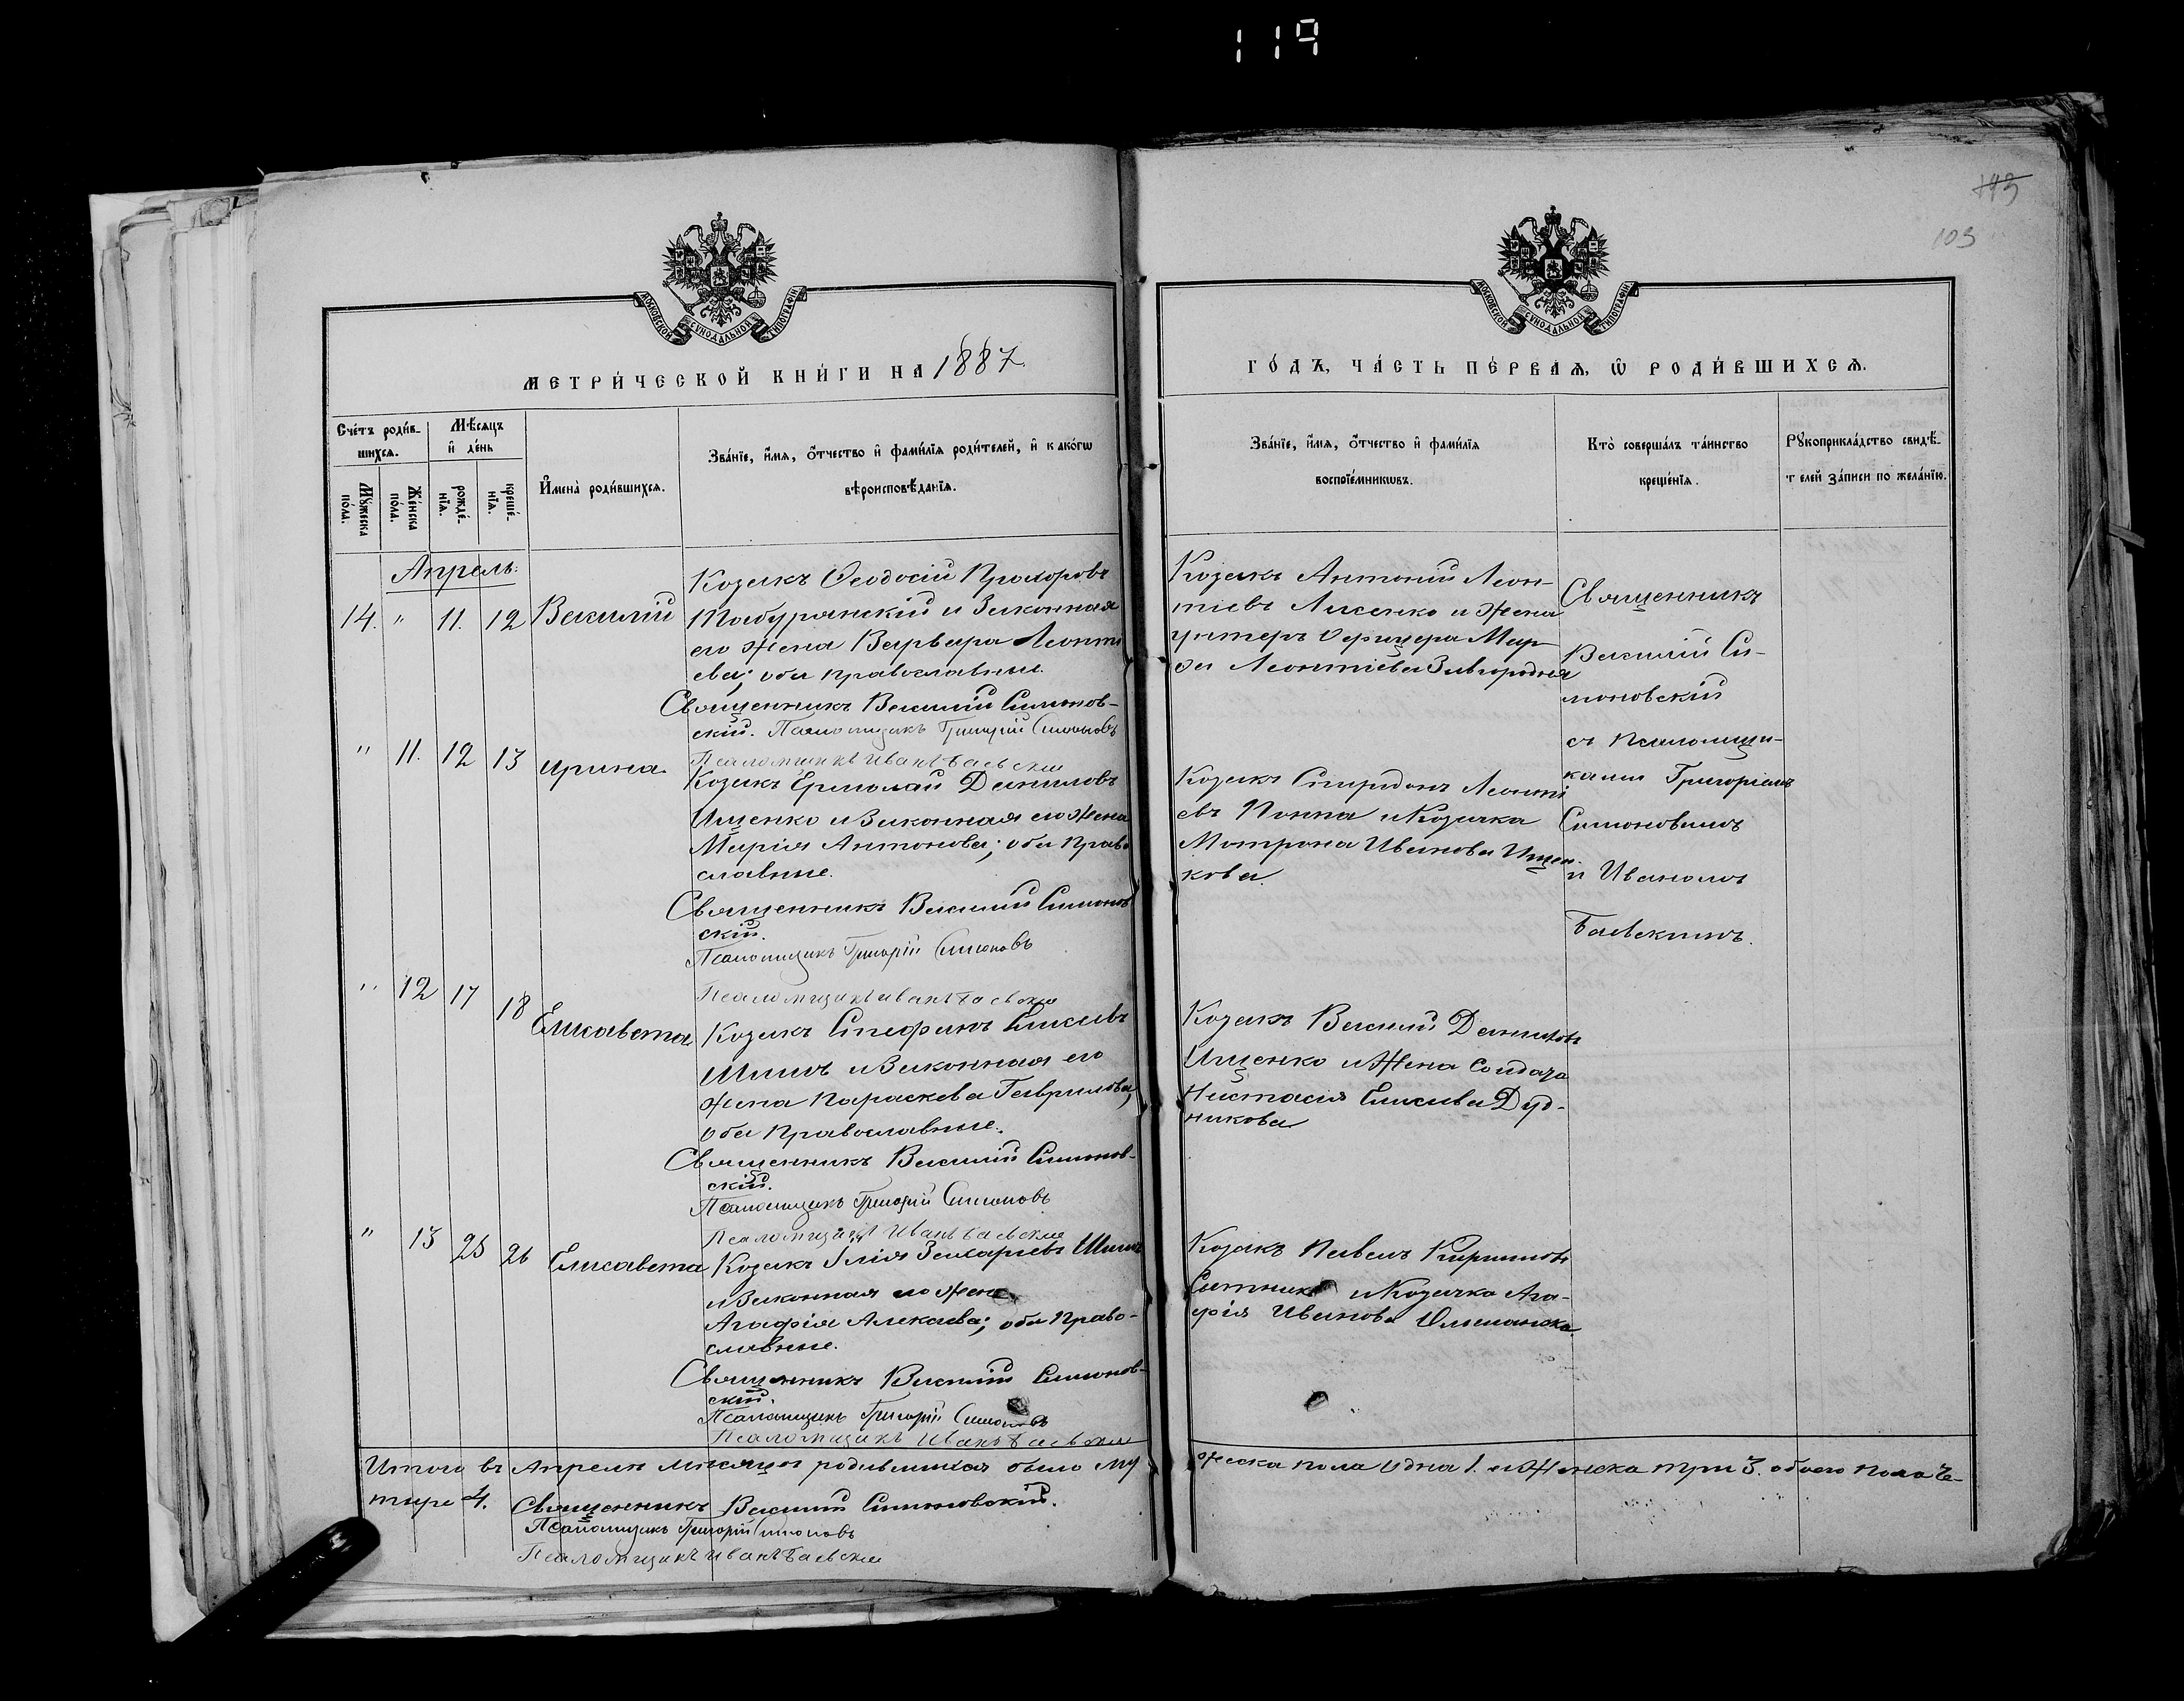 119
113
103
МОСКОВСКОЙ СѴНОДАЛЬНОЙ ТИПОГРАФІИ
МОСКОВСКОЙ СѴНОДАЛЬНОЙ ТИПОГРАФІИ
МЕТРИ́ЧЕСКОЙ КНИ́ГИ НА 1887
ГО́ДЪ, ЧА́СТЬ ПЕ́РВАЯ, Ѿ РОДИ́ВШИХСЯ.
Сче́тъ роди́в-
шихся.
Мꙋ́жеска по́ла.
Же́нска по́ла.
Мѣ́сяцъ
и҆ де́нь
рожде́-
нїя.
креще́-
нїя.
И҆мена̀ роди́вшихся.
Зва́нїе, и҆́мя, ѻ҆́тчество и҆ фами́лїя роди́телей, и҆ како́гѡ
вѣроисповѣ́данїя.
Зва́нїе, и҆́мя, ѻ҆́тчество и҆ фами́лїя
воспрїе́мникѡвъ.
Кто̀ соверша́лъ та́инство
креще́нїя.
Рꙋкоприкла́дство свидѣ́-
телей за́писи по жела́нїю.
Апрель.
14. " 11. 12 Василій
Козакъ Ѳеодосій Прохоровъ
Табурянскій и Законная
его Жена Варвара Леонті
ева; оба православные.
Священникъ Василій Симонов-
скій. Псаломщикъ Григорій Симоновъ
Псаломщикъ Иванъ Баевскій
Козакъ Антоній Леон-
тіевъ Лисенко и Жена
унтеръ Офицера Мар
ѳа Леонтіева Завгородня
Священникъ
Василій Си-
моновскій
съ псаломщи-
ками Григоріемъ
Симоновымъ
и Иваномъ
Баевскимъ.
" 11. 12 13 Ирина.
Козакъ Ермолай Даниловъ
Ищенко и Законная его Жена
Марія Антонова; оба право
славные.
Священникъ Василій Симонов
скій.
Псаломщикъ Григорій Симоновъ
Псаломщикъ Иванъ Баевскій
Козакъ Спиридонъ Леонті
евъ Попка и Козачка
Мотрона Иванова Ищен-
кова.
" 12 17 18 Елисавета
Козакъ Стефанъ Елисеевъ
Шишъ и Законная его
Жена Параскева Гаврилова,
оба Православные.
Священникъ Василій Симонов-
скій.
Псаломщикъ Григорій Симоновъ
Псаломщикъ Иванъ Баевскій
Козакъ Василій Даниловъ
Ищенко и Жена Солдата
Настасія Елисеева Дуд-
никова
" 13 25 26 Елисавета
Козакъ Илія Захаріевъ Шишъ
и Законная его Жена
Агафія Алексева; оба Право-
славные.
Священникъ Василій Симонов-
скій.
Псаломщикъ Григорій Симоновъ
Псаломщикъ Иванъ Баевскій
Козакъ Павелъ Кириловъ
Ситник и Козачка Ага-
фія Иванова
Итого въ Апреле месяце родившихся было му
жеска пола одна 1. и Женска три 3. обоего пола че-
тыре 4. Священникъ Василій Симоновскій.
Псаломщикъ Григорій Симоновъ
Псаломщикъ Иванъ Баевскій